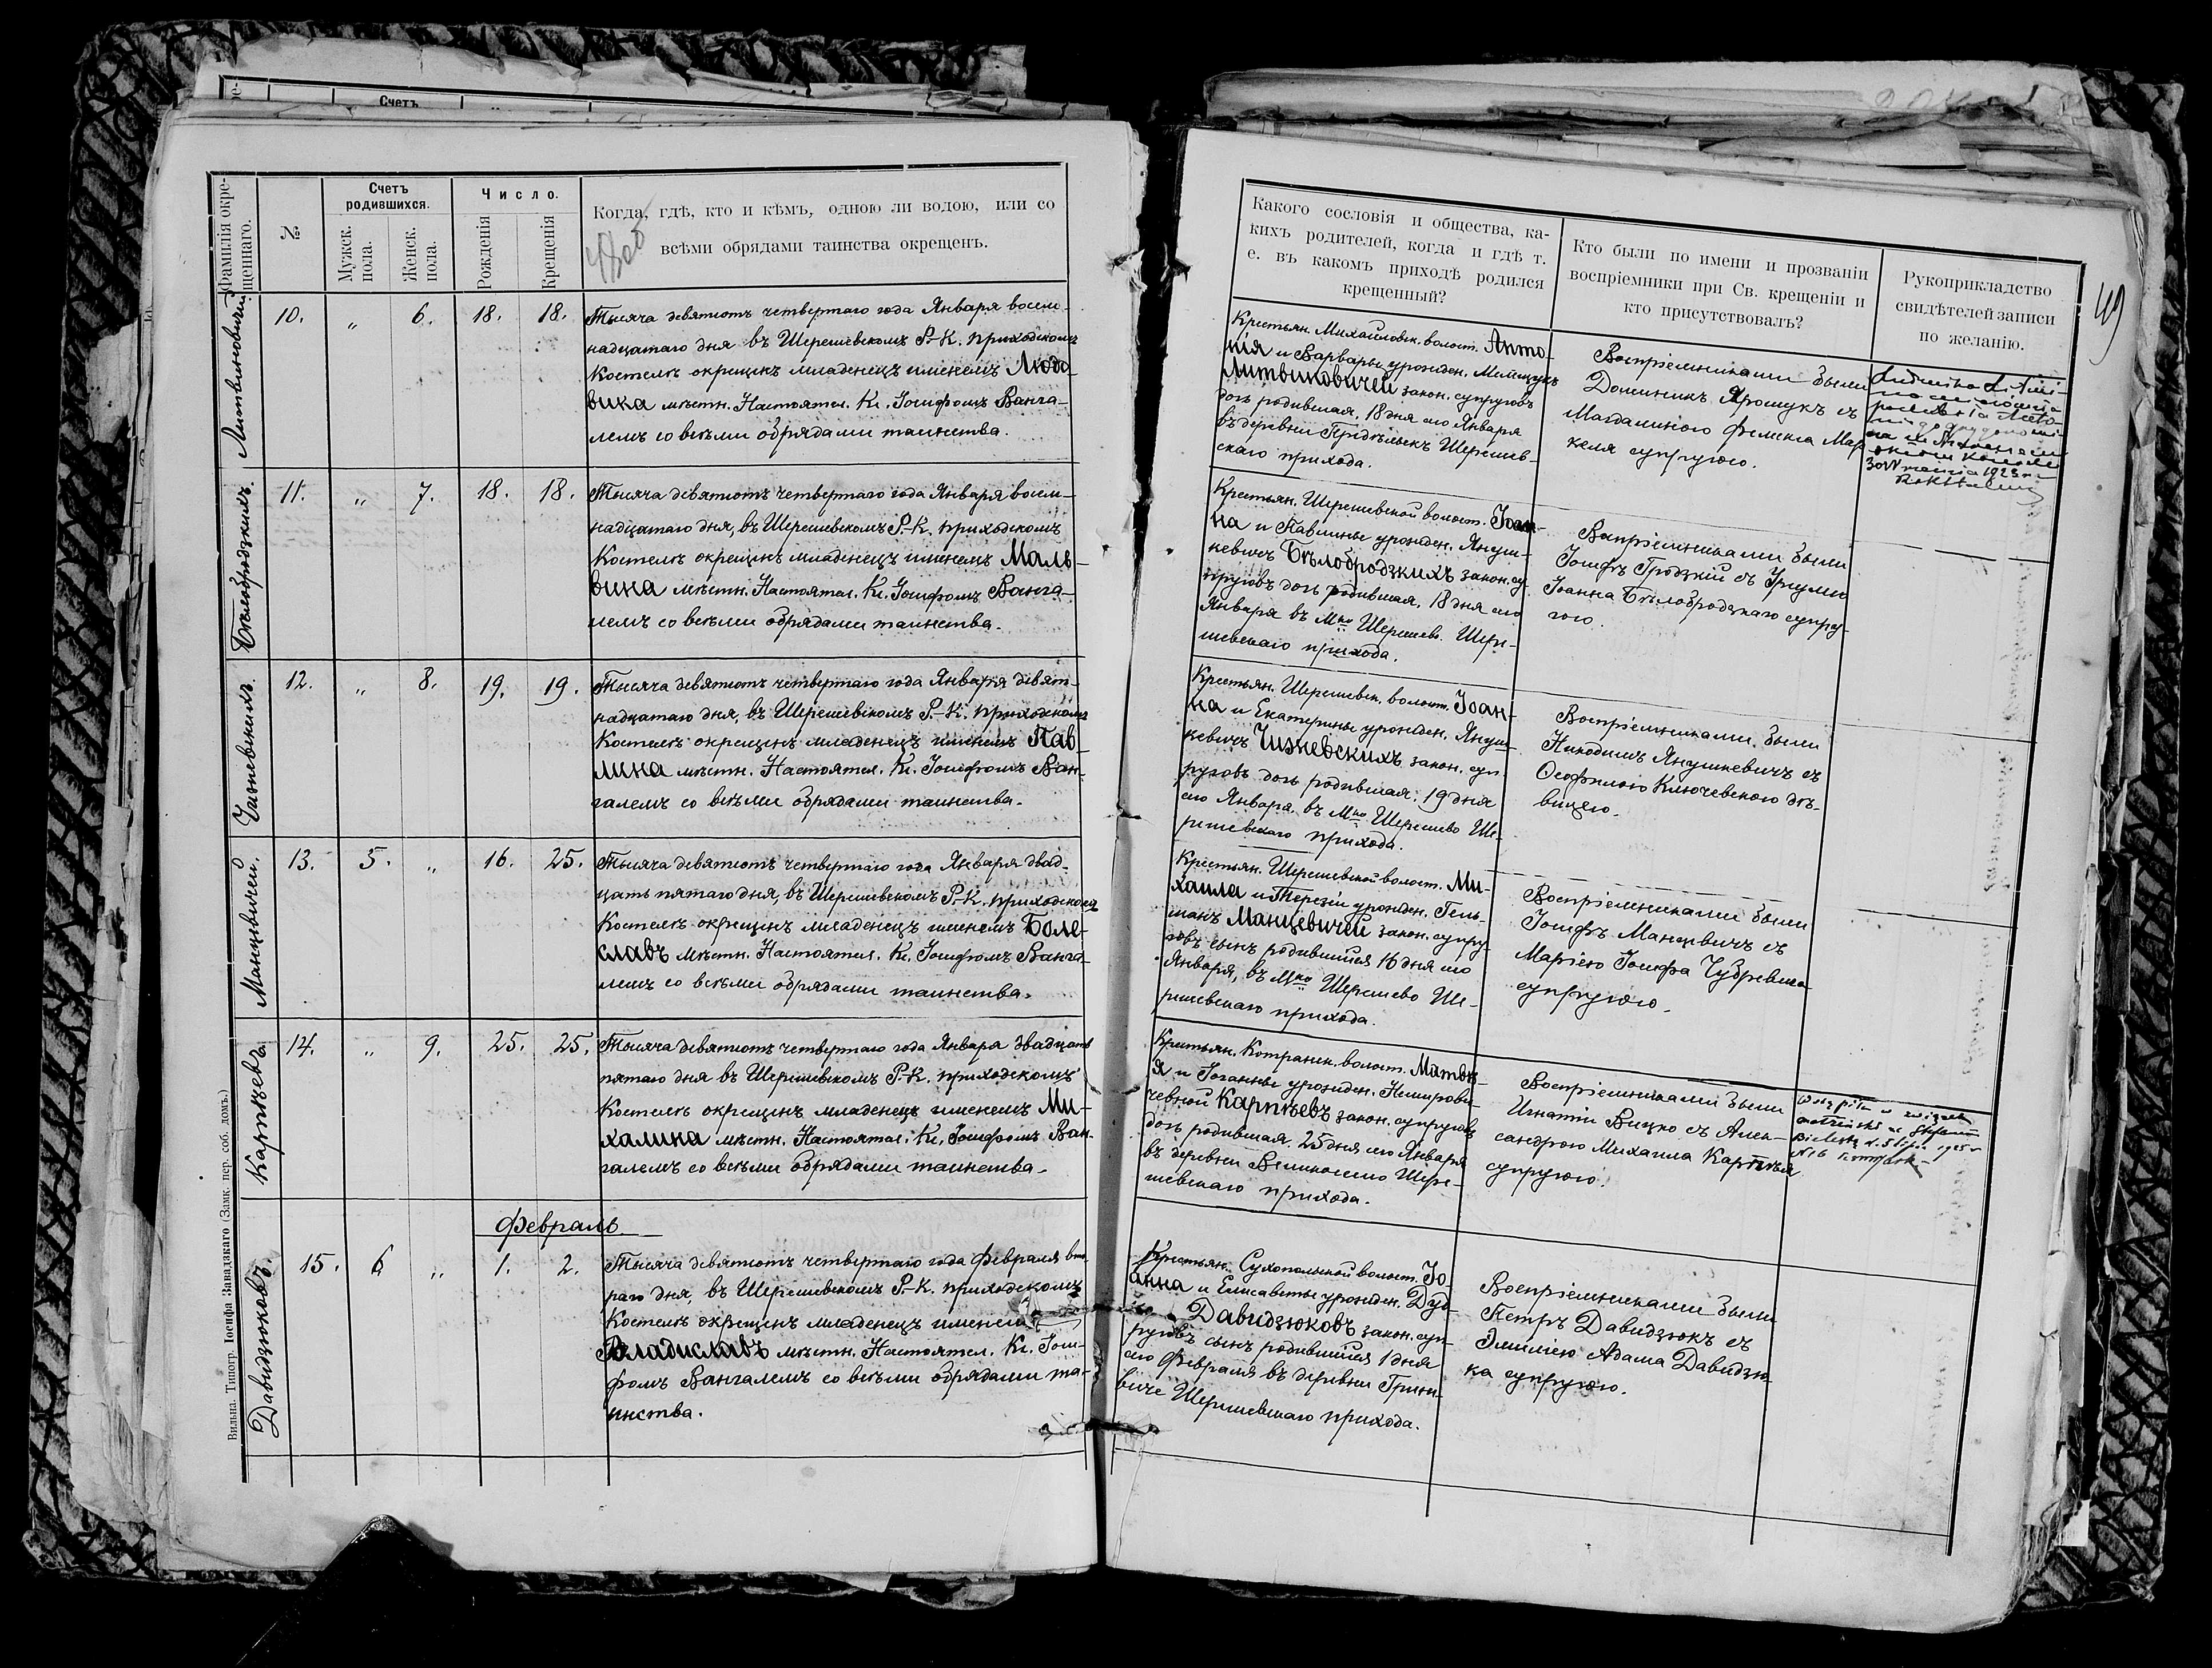 Фамилія окре-
щеннаго.
№
Счетъ
родившихся.
Мужск.
пола.
Женск.
пола.
Число.
Рожденія
Крещенія
Когда, гдѣ, кто и кѣмъ, одною ли водою, или со
всѣми обрядами таинства окрещенъ.
Литвиновичей
10.
„
6.
18.
18.
Тысяча девятьотъ четвертаго года Января восем-
надцатаго дня въ Шерешевскомъ Р-К. приходскомъ
Костелѣ окрещенъ младенецъ именемъ Людо-
вика мѣстн. Настоятел. Кс. Іосифомъ Ванга-
лемъ со всѣми обрядами таинства.
Бѣлобродзкихъ.
11.
„
7.
18.
18.
Тысяча девятьотъ четвертаго года Января восем-
надцатаго дня, въ Шерешевскомъ Р-К. приходскомъ
Костелѣ окрещенъ младенецъ именемъ Маль-
вина мѣстн. Настоятел. Кс. Іосифомъ Ванга-
лемъ со всѣми обрядами таинства.
Чижевскихъ.
12.
„
8.
19.
19.
Тысяча девятьотъ четвертаго года Января девят-
надцатаго дня, въ Шерешевскомъ Р.-К. приходскомъ
Костелѣ окрещенъ младенецъ именемъ Пав-
лина мѣстн. Настоятел. Кс. Іосифомъ Ван-
галемъ со всѣми обрядами таинства.
Манцевичей.
13.
5.
„
16.
25.
Тысяча девятьотъ четвертаго года Января двад-
цать пятаго дня, въ Шерешевскомъ Р-К. приходскомъ
Костелѣ окрещенъ младенецъ именемъ Боле-
славъ мѣстн. Настоятел. Кс. Іосифомъ Ванга-
лемъ со всѣми обрядами таинства.
Карпѣевъ.
14.
„
9.
25.
25.
Тысяча девятьотъ четвертаго года Января двадцать
пятаго дня въ Шерешевскомъ Р-К. приходскомъ
Костелѣ окрещенъ младенецъ именемъ Ми-
халина мѣстн. Настоятел. Кс. Іосифомъ Ван-
галемъ со всѣми обрядами таинства.
Февраль.
Давидзюковъ.
15.
6
„
1.
2.
Тысяча девятьотъ четвертаго года Февраля вто-
раго дня, въ Шерешевскомъ Р-К. приходскомъ
Костелѣ окрещенъ младенецъ именем
Владиславъ мѣстн. Настоятел. Кс. Іоси-
фомъ Вангалемъ со всѣми обрядами та-
инства.
Вильна. Типогр. Іосифа Завадзкаго (Замк. пер. соб. домъ.)
Какого сословія и общества, ка-
кихъ родителей, когда и гдѣ т.
е. въ какомъ приходѣ родился
крещенный?
Кто были по имени и прозванію
воспріемники при Св. крещеніи и
кто присутствовалъ?
Рукоприкладство
свидѣтелей записи
по желанію.
49
Крестьян. Михайловск. волост. Анто-
нія и Варвары урожден. Мищукъ
Литвиновичей закон. супруговъ
дочь родившая. 18 дня сего Января
въ деревни Придѣльекъ Шерешев-
скаго прихода.
Воспріемниками были
Доминикъ Ярошукъ съ
Магдалиною Феликса Мар
келя супругою.
30 1928 r.
Крестьян. Шерешевской волост. Іоан-
на и Павлины урожден. Януш-
кевичъ Бѣлобродзкихъ закон. су-
пруговъ дочь родившая. 18 дня сего
Января въ Мко Шерешево. Шере-
шевскаго прихода.
Воспріемниками были
Іосифъ Гродзкій съ Урсулою
Іоанна Бѣлобродзкаго супру-
гою.
Крестьян. Шерешевск. волост. Іоан-
на и Екатерины урожден. Януш-
кевичъ Чижевскихъ закон. суп-
руговъ дочь родившая. 19 дня
сего Января въ Мко Шерешево Ше-
решевскаго прихода.
Воспріемниками были
Никодимъ Янушкевичъ съ
Ѳеофилою Ключевскою дѣ-
вицею.
Крестьян. Шерешевской волост. Ми-
хаила и Терезіи урожден. Гель-
манъ Манцевичей закон. супру-
говъ сынъ родившійся 16 дня сего
Января, въ Мко Шерешево Ше-
решевскаго прихода.
Воспріемниками были
Іосифъ Манцевичъ съ
Маріею Іосифа Чубревича
супругою.
Крестьян. Котранск. волост. Матвѣ-
я и Іоганны урожден. Немирови-
чевной Карпѣевъ закон. супруговъ
дочь родившая. 25 дня сего Января
въ деревни Великосело Шере-
шевскаго прихода.
Воспріемниками были
Игнатій Вицко съ Алек-
сандрою Михаила Карпѣя
супругою.
wstąpiła w związek
małżeński ze Stefanem
1925 r
Крестьян. Сухопольской волост. Іо-
анна и Елисаветы урожден. Дуб-
Давидзюковъ закон. суп-
руговъ сынъ родившійся 1 дня
сего Февраля въ деревни Грине-
виче Шерешевскаго прихода.
Воспріемниками были
Петръ Давидзюкъ съ
Эмиліею Адама Давидзю-
ка супругою.